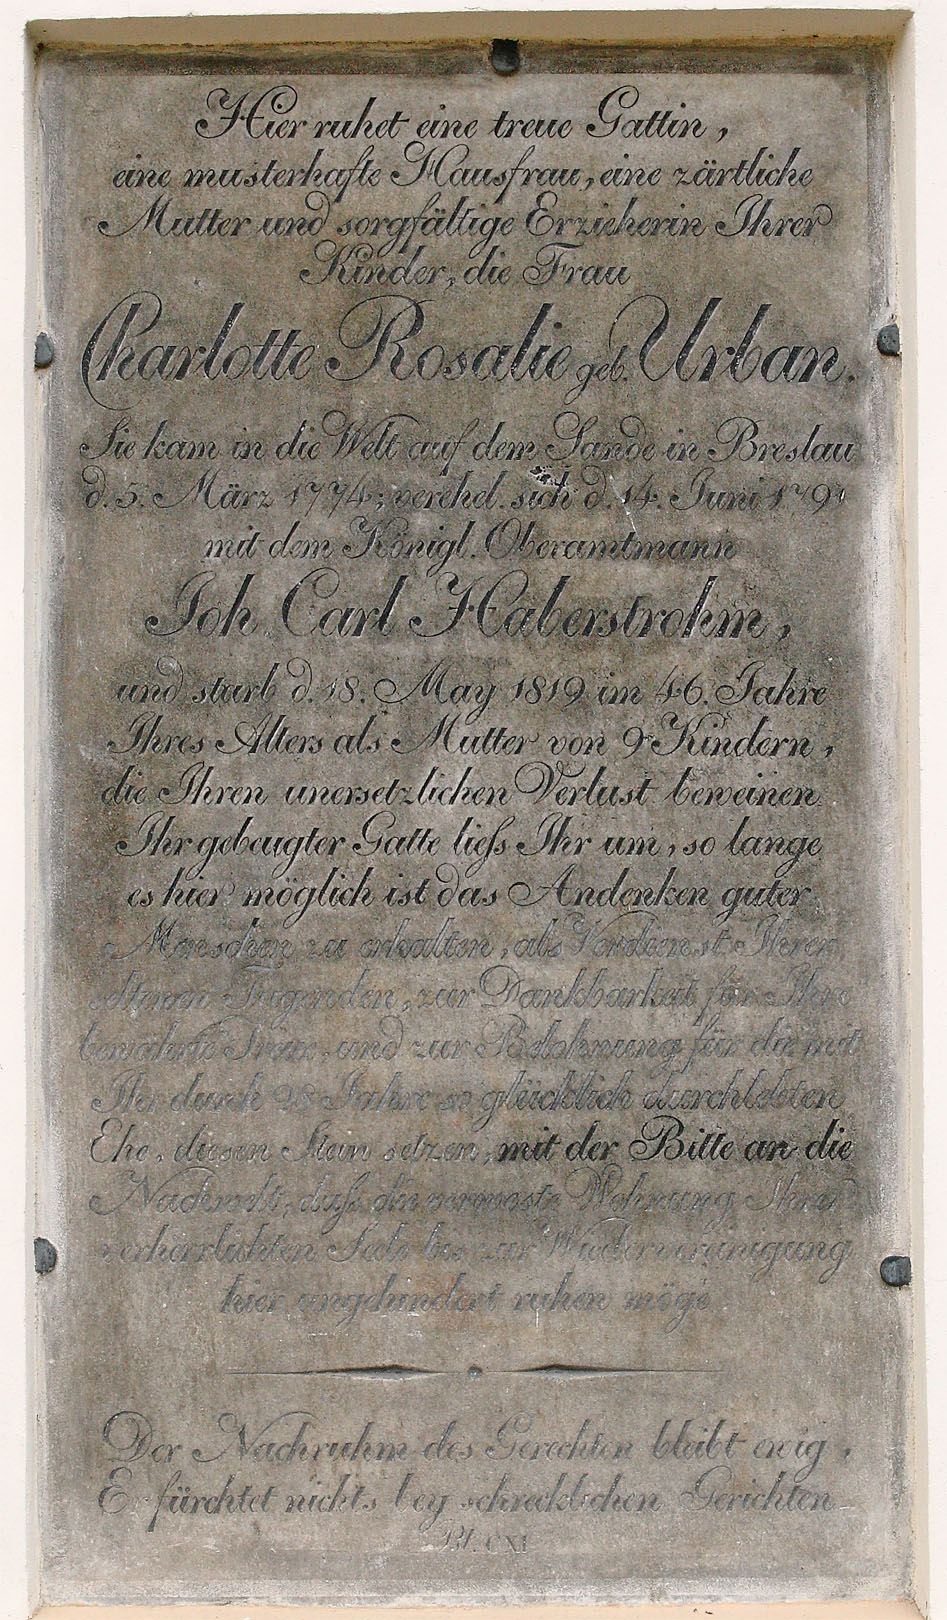 Hier ruhet eine treue Gattin,
eine musterhafte Hausfrau, eine zärtliche
Mutter und sorgfältige Erzieherin Ihrer
Kinder, die Frau
Charlotte Rosalie geb. Urban.
Sie kam in die Welt auf dem Sande in Breslau
d. 5. März 1774; verehel. sich d. 14. Juni 1791
mit dem Königl. Oberamtmann
Joh Carl Haberstrohm,
und starb d. 18. May 1819 im 46. Jahre
Ihres Alters als Mutter von 9 Kindern,
die Ihren unersetzlichen Verlust beweinen
Ihr gebeugter Gatte liess Ihr um, so lange
es hier möglich ist das Andenken guter
Menschen zu erhalten, als Verdienst Ihrer
seltenen Tugenden, zur Dankbarkeit für Ihre
bewährte Treue, und zur Belohnung für die mit
Ihr durch 28 Jahre so glücklich durchlebten
Ehe, diesen Stein setzen, mit der Bitte an die
Nachwelt, dass die verwaiste Wohnung Ihrer
verherrlichten Seele bis zur Wiedervereinigung
hier ungehindert ruhen möge
Der Nachruhm des Gerechten bleibt ewig,
Er fürchtet nichts bey schrecklichen Gerichten
Pf. CXI